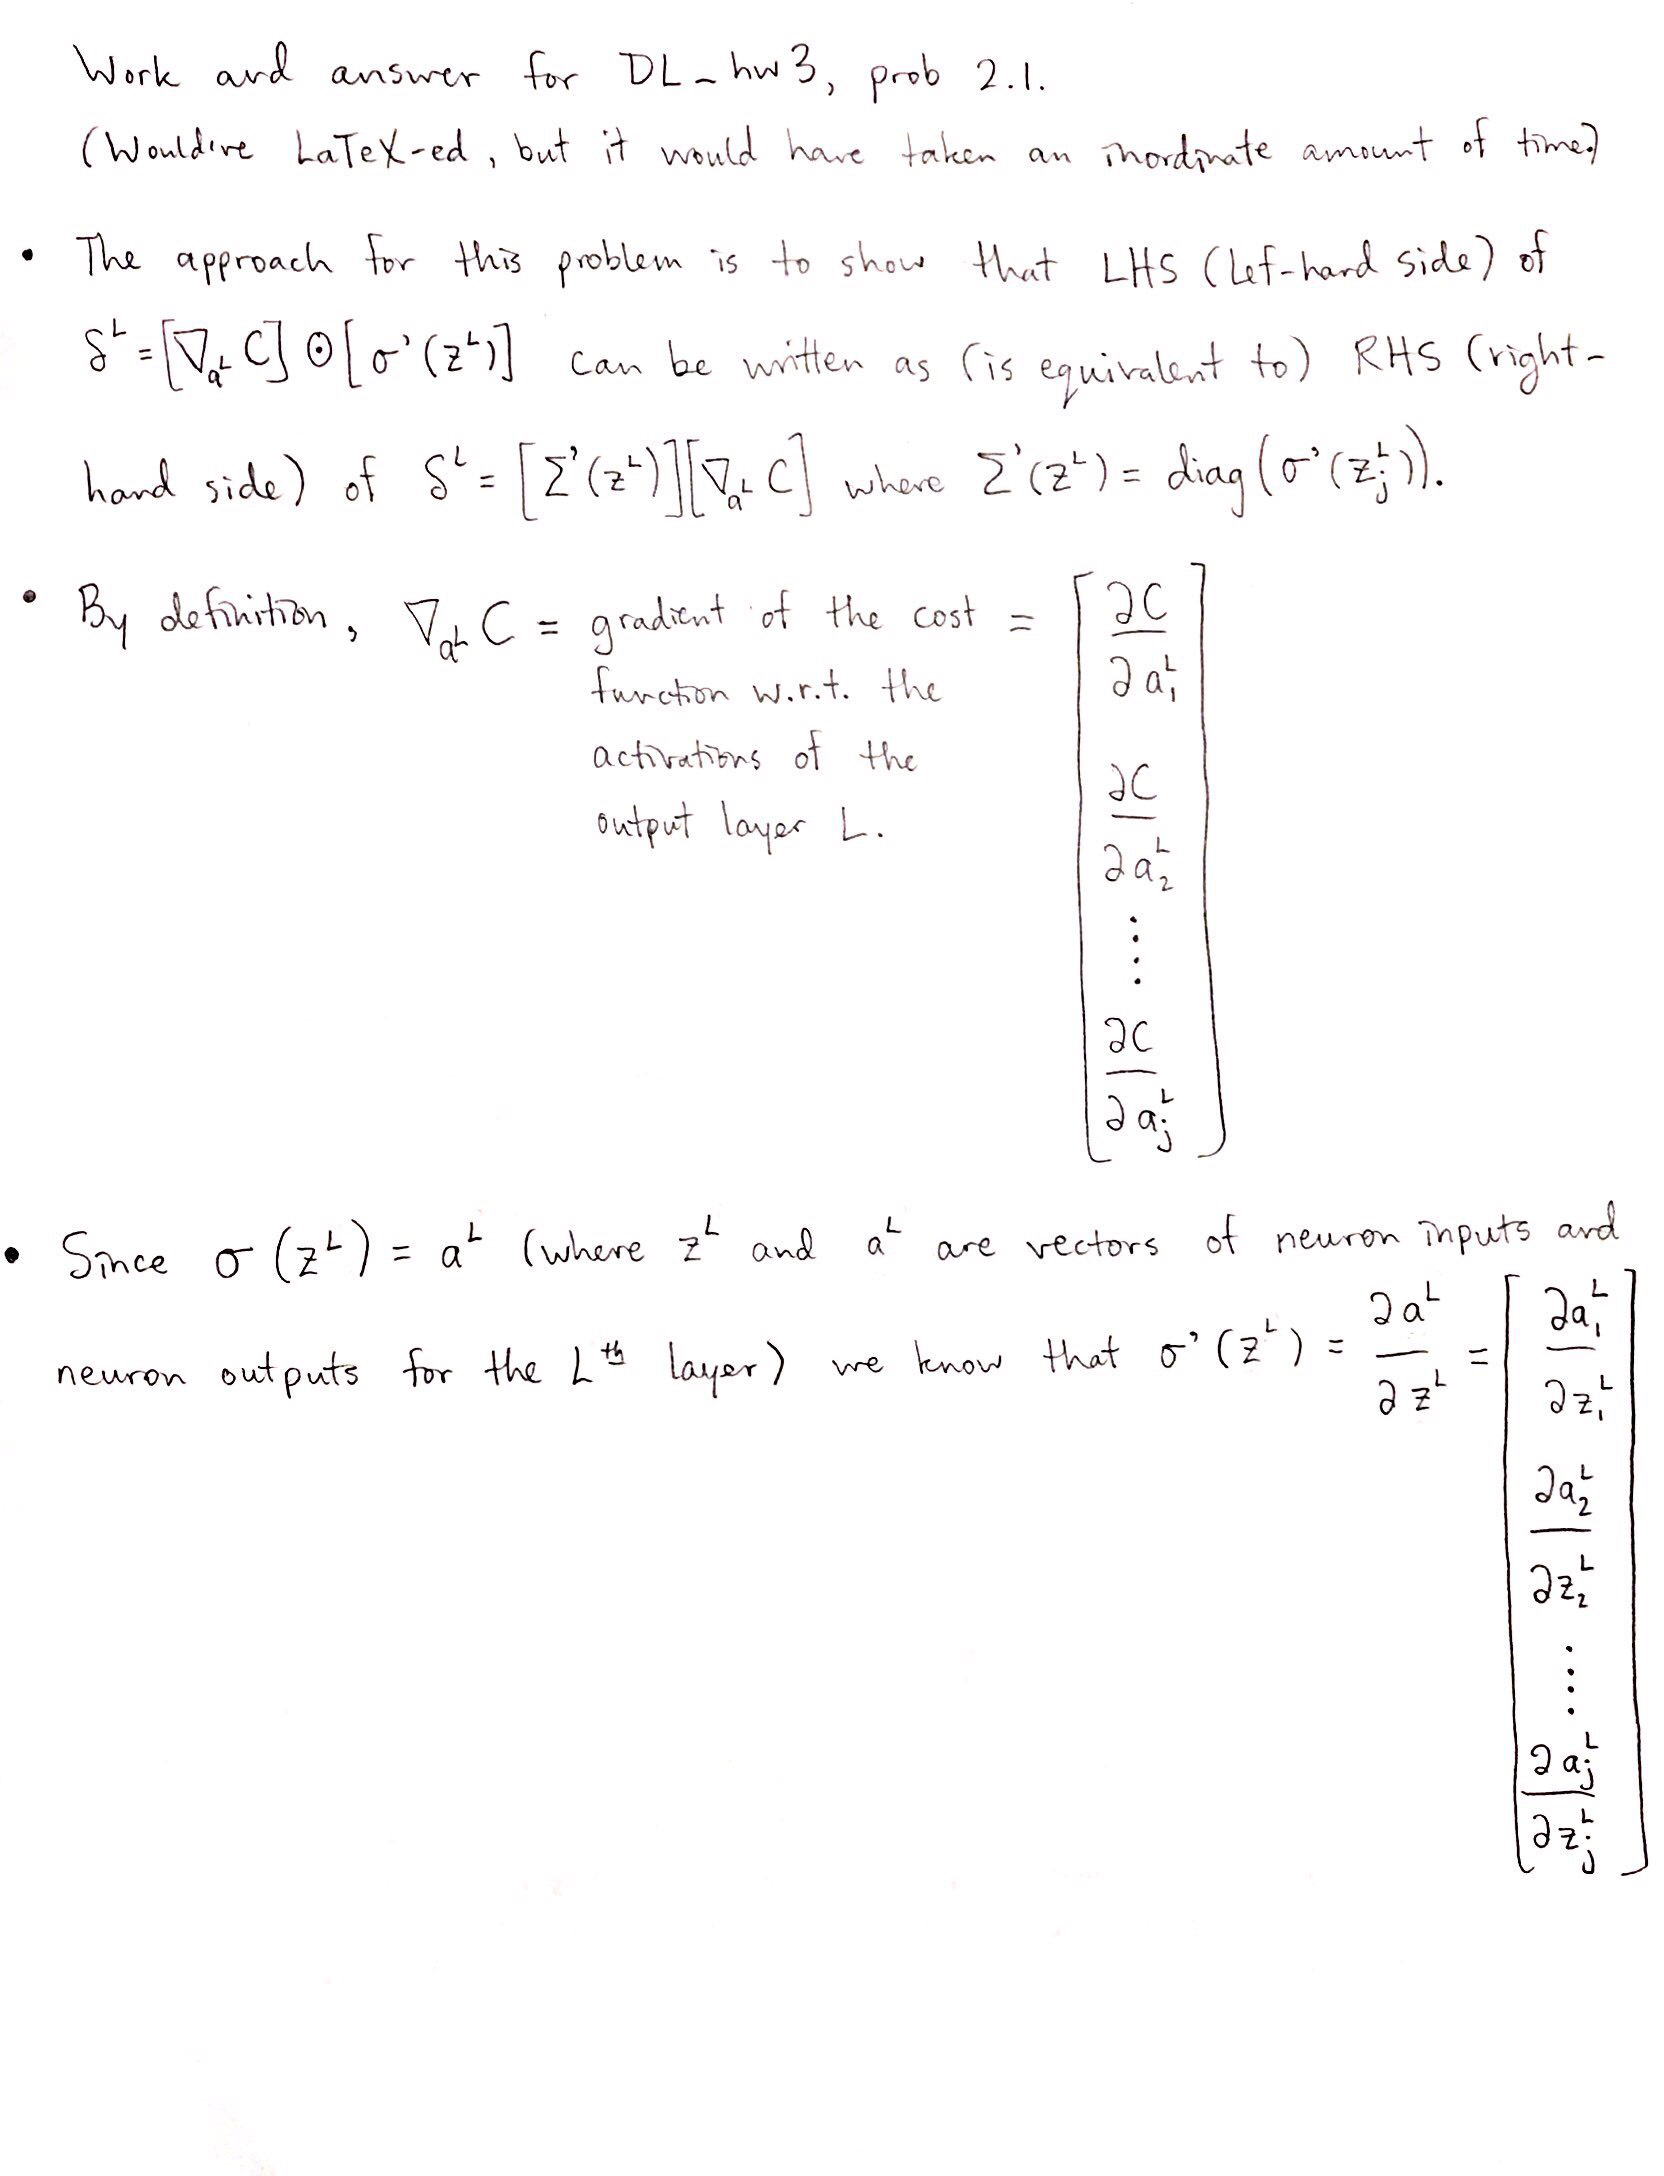 Work and answer for DL_hw3, prob 2.1.
(Would've LaTeX-ed, but it would have taken an inordinate amount of time.)
• The approach for this problem is to show that LHS (lef-hand side) of
δ^L = [∇_{a^L} C] ⊙ [σ'(z^L)] can be written as (is equivalent to) RHS (right-
hand side) of δ^L = [Σ'(z^L)][∇_{a^L} C] where Σ'(z^L) = diag(σ'(z_j^L)).
• By definition, ∇_{a^L} C = gradient of the cost =
function w.r.t. the
activations of the
output layer L.
[∂C/∂a_1^L
∂C/∂a_2^L
⋮
∂C/∂a_j^L]
• Since σ(z^L) = a^L (where z^L and a^L are vectors of neuron inputs and
neuron outputs for the L^th layer) we know that σ'(z^L) = ∂a^L/∂z^L =
[∂a_1^L/∂z_1^L
∂a_2^L/∂z_2^L
⋮
∂a_j^L/∂z_j^L]